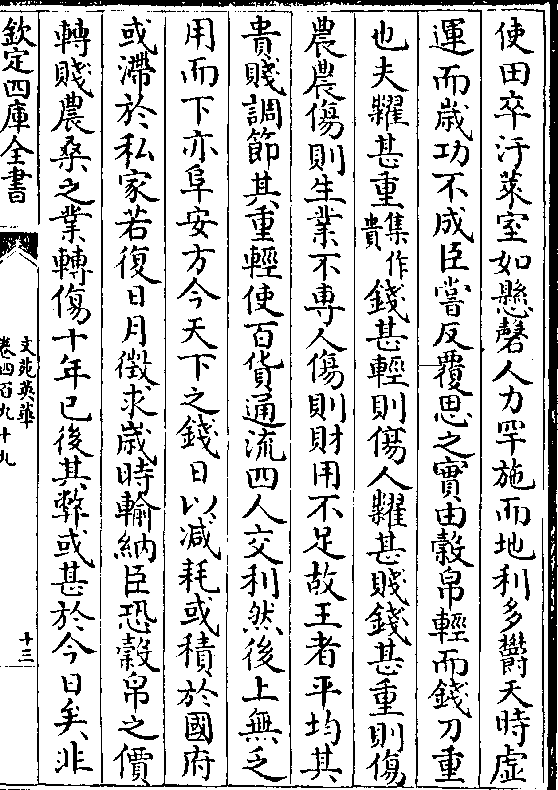 使田卒汙萊室如懸磬人力罕施而地利多鬱天時虛
運而歲功不成臣嘗反覆思之實由穀帛輕而錢刀重
也夫糴甚重集作貴錢甚輕則傷人糴甚賤錢甚重則傷
農農傷則生業不專人傷則財用不足故王者平均其
貴賤調節其重輕使百貨通流四人交利然後上無乏
用而下亦阜安方今天下之錢日以減耗或積於國府
或滯於私家若復日月徵求歲時輸納臣恐穀帛之價
轉賤農桑之業轉傷十年已後其弊或甚於今日矣非
欽定四庫全書
文苑英華
卷四百九十九
十三